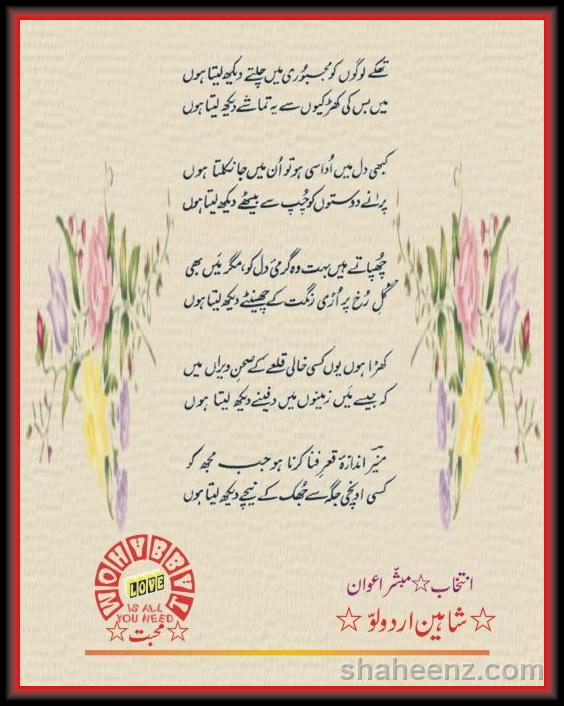 تھکے لوگوں کو مجبوری میں چلتے دیکھ لیتا ہوں
میں بس کی کھڑکیوں سے یہ تماشے دیکھ لیتا ہوں
کبھی دل میں اُداسی ہو تو اُن میں جا نکلتا ہوں
پرانے دوستوں کو چُپ سے بیٹھے دیکھ لیتا ہوں
چُھپاتے ہیں بہت وہ گرمیٔ دل کو، مگر مَیں بھی
گُلِ رُخ پر اُڑی رنگت کے چھینٹے دیکھ لیتا ہوں
کھڑا ہوں یوں کسی خالی قلعے کے صحنِ ویراں میں
کہ جیسے مَیں زمینوں میں دفینے دیکھ لیتا ہوں
منیرؔ اندازۂ قعرِ فنا کرنا ہو جب مجھ کو
کسی اونچی جگہ سے جُھک کے نیچے دیکھ لیتا ہوں
انتخاب☆مبشّر اعوان
☆شاہین اردو لوّ☆
WOHYBBAT
LOVE
IS ALL
YOU NEED
☆محبت☆
shaheenz.com